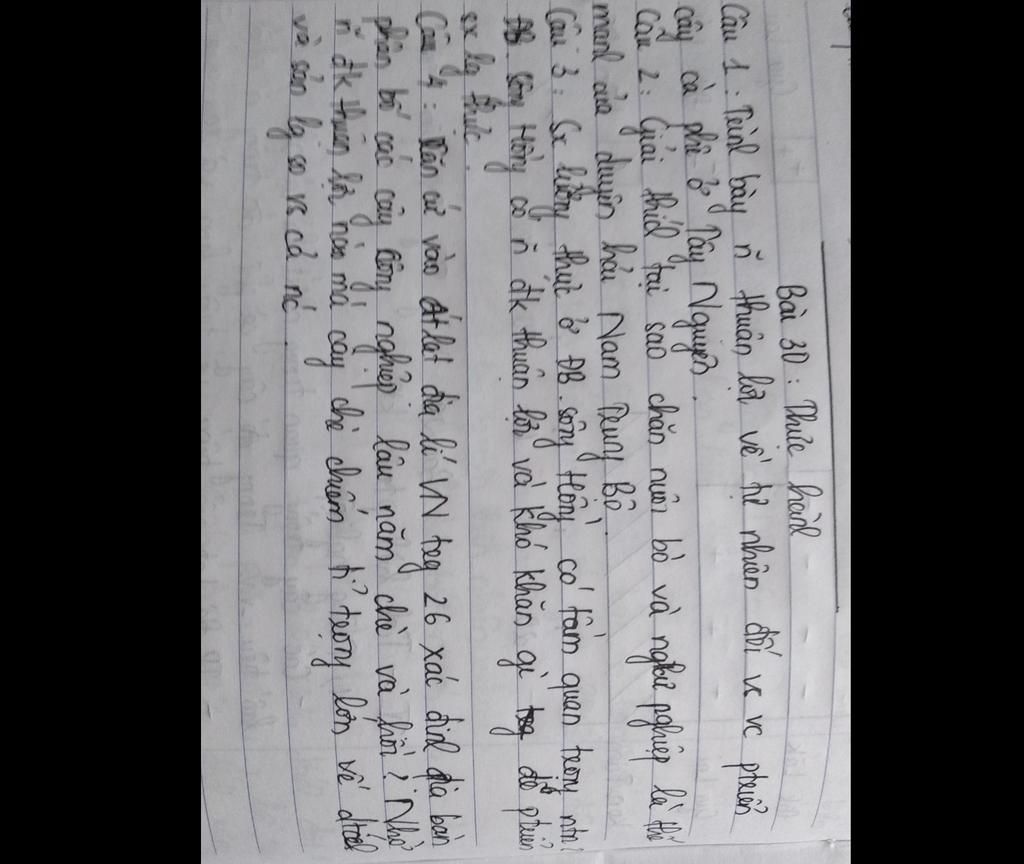 Bài 30: Thực hành
Câu 1: Trình bày ~ thuận lợi về tự nhiên đối vs vc ptriển
cây cà phê ở Tây Nguyên.
Câu 2: Giải thích tại sao chăn nuôi bò và ngư nghiệp là thế
mạnh của duyên hải Nam Trung Bộ.
Câu 3: Sx lương thực ở ĐB. sông Hồng có tầm quan trọng ntn?
ĐB. sông Hồng có ~ đk thuận lợi và khó khăn gì để ptriển
sx lg thực.
Câu 4: Căn cứ vào Atlat địa lí VN trg 26 xác định địa bàn
phân bố các cây công nghiệp lâu năm chè và hồi? Nhờ
~ đk thuận lợi nào mà cây chè chiếm tỉ trọng lớn về dtích
và sản lg so vs cả nc